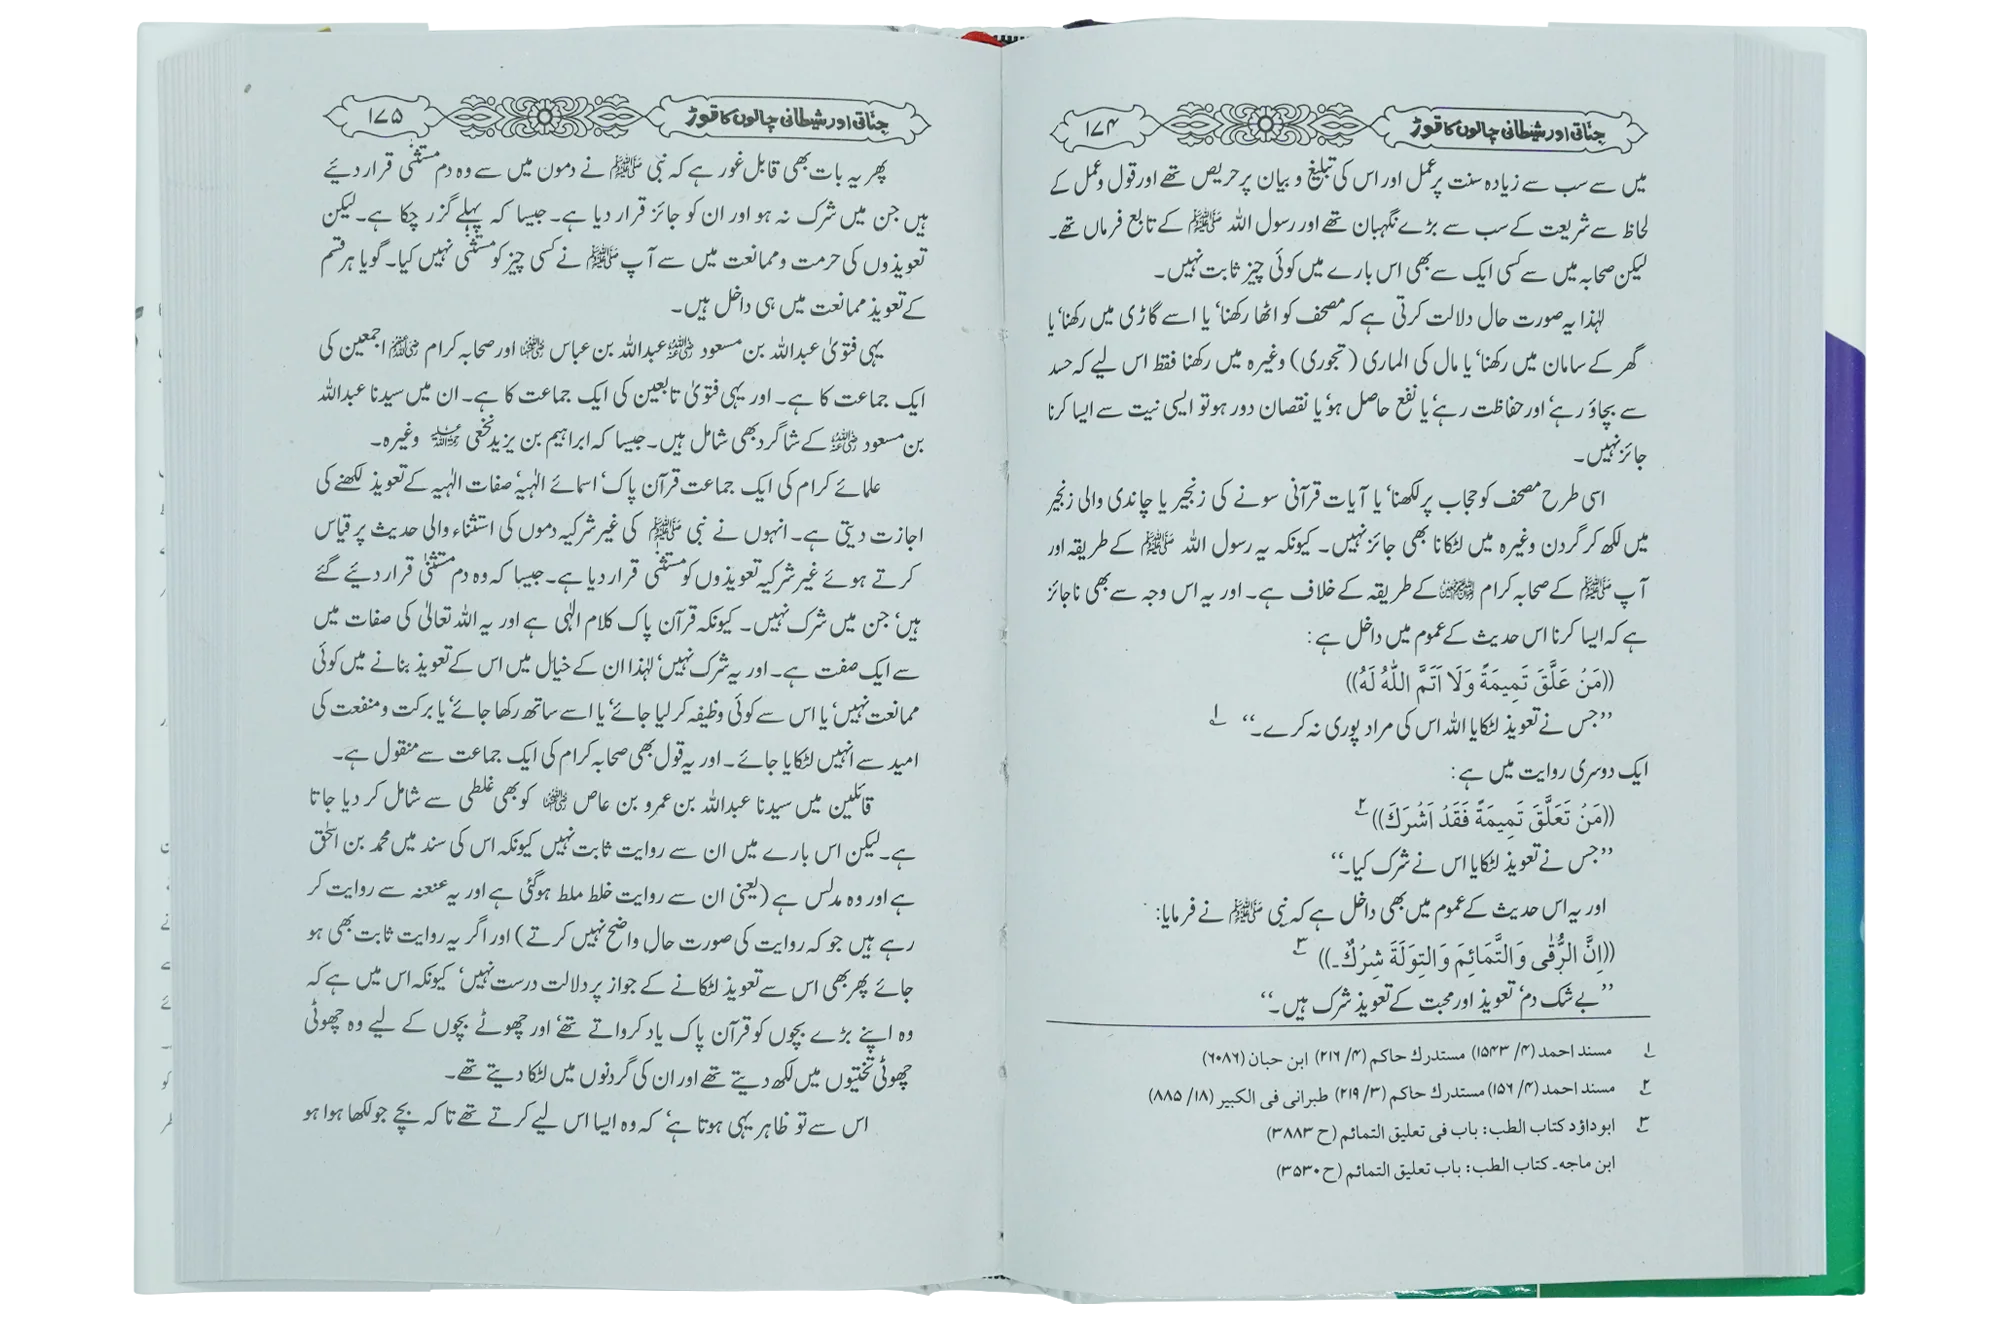 جناتی اور شیطانی چالوں کا توڑ
۱۷۴
میں سے سب سے زیادہ سنت پر عمل اور اس کی تبلیغ و بیان پر حریص تھے اور قول و عمل کے
لحاظ سے شریعت کے سب سے بڑے نگہبان تھے اور رسول اللہ ﷺ کے تابع فرماں تھے۔
لیکن صحابہ میں سے کسی ایک سے بھی اس بارے میں کوئی چیز ثابت نہیں۔
لہٰذا یہ صورت حال دلالت کرتی ہے کہ مصحف کو اٹھا رکھنا‘ یا اسے گاڑی میں رکھنا‘ یا
گھر کے سامان میں رکھنا‘ یا مال کی الماری (تجوری) وغیرہ میں رکھنا فقط اس لیے کہ حسد
سے بچاؤ رہے‘ اور حفاظت رہے‘ یا نفع حاصل ہو‘ یا نقصان دور ہو تو ایسی نیت سے ایسا کرنا
جائز نہیں۔
اسی طرح مصحف کو حجاب پر لکھنا‘ یا آیات قرآنی سونے کی زنجیر یا چاندی والی زنجیر
میں لکھ کر گردن وغیرہ میں لٹکانا بھی جائز نہیں۔ کیونکہ یہ رسول اللہ ﷺ کے طریقہ اور
آپ ﷺ کے صحابہ کرام رضی اللہ عنہم کے طریقہ کے خلاف ہے۔ اور یہ اس وجہ سے بھی ناجائز
ہے کہ ایسا کرنا اس حدیث کے عموم میں داخل ہے:
((مَنْ عَلَّقَ تَمِيمَةً وَلَا اَتَمَّ اللّٰهُ لَهُ))
’’جس نے تعویذ لٹکایا اللہ اس کی مراد پوری نہ کرے۔‘‘ ۱
ایک دوسری روایت میں ہے:
((مَنْ تَعَلَّقَ تَمِيمَةً فَقَدْ اَشْرَكَ)) ۲
’’جس نے تعویذ لٹکایا اس نے شرک کیا۔‘‘
اور یہ اس حدیث کے عموم میں بھی داخل ہے کہ نبی ﷺ نے فرمایا:
((اِنَّ الرُّقٰى وَالتَّمَائِمَ وَالتِوَلَةَ شِرْكٌ۔)) ۳
’’بے شک دم‘ تعویذ اور محبت کے تعویذ شرک ہیں۔‘‘
۱ مسند احمد (۴/ ۱۵۴۳) مستدرك حاکم (۴/ ۲۱۶) ابن حبان (۶۰۸۶)
۲ مسند احمد (۴/ ۱۵۶) مستدرك حاکم (۳/ ۲۱۹) طبرانی فی الکبیر (۱۸/ ۸۸۵)
۳ ابوداؤد کتاب الطب: باب فی تعلیق التمائم (ح ۳۸۸۳)
ابن ماجه۔ کتاب الطب: باب تعلیق التمائم (ح ۳۵۳۰)
جناتی اور شیطانی چالوں کا توڑ
۱۷۵
پھر یہ بات بھی قابل غور ہے کہ نبی ﷺ نے دموں میں سے وہ دم مستثنٰی قرار دیئے
ہیں جن میں شرک نہ ہو اور ان کو جائز قرار دیا ہے۔ جیسا کہ پہلے گزر چکا ہے۔ لیکن
تعویذوں کی حرمت و ممانعت میں سے آپ ﷺ نے کسی چیز کو مستثنٰی نہیں کیا۔ گویا ہر قسم
کے تعویذ ممانعت میں ہی داخل ہیں۔
یہی فتویٰ عبداللہ بن مسعود رضی اللہ عنہ عبداللہ بن عباس رضی اللہ عنہما اور صحابہ کرام رضی اللہ عنہم اجمعین کی
ایک جماعت کا ہے۔ اور یہی فتویٰ تابعین کی ایک جماعت کا ہے۔ ان میں سیدنا عبداللہ
بن مسعود رضی اللہ عنہ کے شاگرد بھی شامل ہیں۔ جیسا کہ ابراہیم بن یزید نخعی رحمۃ اللہ علیہ وغیرہ۔
علمائے کرام کی ایک جماعت قرآن پاک‘ اسمائے الٰہیہ‘ صفات الٰہیہ کے تعویذ لکھنے کی
اجازت دیتی ہے۔ انہوں نے نبی ﷺ کی غیر شرکیہ دموں کی استثناء والی حدیث پر قیاس
کرتے ہوئے غیر شرکیہ تعویذوں کو مستثنٰی قرار دیا ہے۔ جیسا کہ وہ دم مستثنٰی قرار دیئے گئے
ہیں‘ جن میں شرک نہیں۔ کیونکہ قرآن پاک کلام الٰہی ہے اور یہ اللہ تعالٰی کی صفات میں
سے ایک صفت ہے۔ اور یہ شرک نہیں‘ لہٰذا ان کے خیال میں اس کے تعویذ بنانے میں کوئی
ممانعت نہیں‘ یا اس سے کوئی وظیفہ کر لیا جائے‘ یا اسے ساتھ رکھا جائے‘ یا برکت و منفعت کی
امید سے انہیں لٹکایا جائے۔ اور یہ قول بھی صحابہ کرام کی ایک جماعت سے منقول ہے۔
قائلین میں سیدنا عبداللہ بن عمرو بن عاص رضی اللہ عنہما کو بھی غلطی سے شامل کر دیا جاتا
ہے۔ لیکن اس بارے میں ان سے روایت ثابت نہیں کیونکہ اس کی سند میں محمد بن اسحٰق
ہے اور وہ مدلس ہے (یعنی ان سے روایت خلط ملط ہو گئی ہے اور یہ عنعنہ سے روایت کر
رہے ہیں جو کہ روایت کی صورت حال واضح نہیں کرتے) اور اگر یہ روایت ثابت بھی ہو
جائے پھر بھی اس سے تعویذ لٹکانے کے جواز پر دلالت درست نہیں‘ کیونکہ اس میں ہے کہ
وہ اپنے بڑے بچوں کو قرآن پاک یاد کرواتے تھے‘ اور چھوٹے بچوں کے لیے وہ چھوٹی
چھوٹی تختیوں میں لکھ دیتے تھے اور ان کی گردنوں میں لٹکا دیتے تھے۔
اس سے تو ظاہر یہی ہوتا ہے‘ کہ وہ ایسا اس لیے کرتے تھے تاکہ بچے جو لکھا ہوا ہو